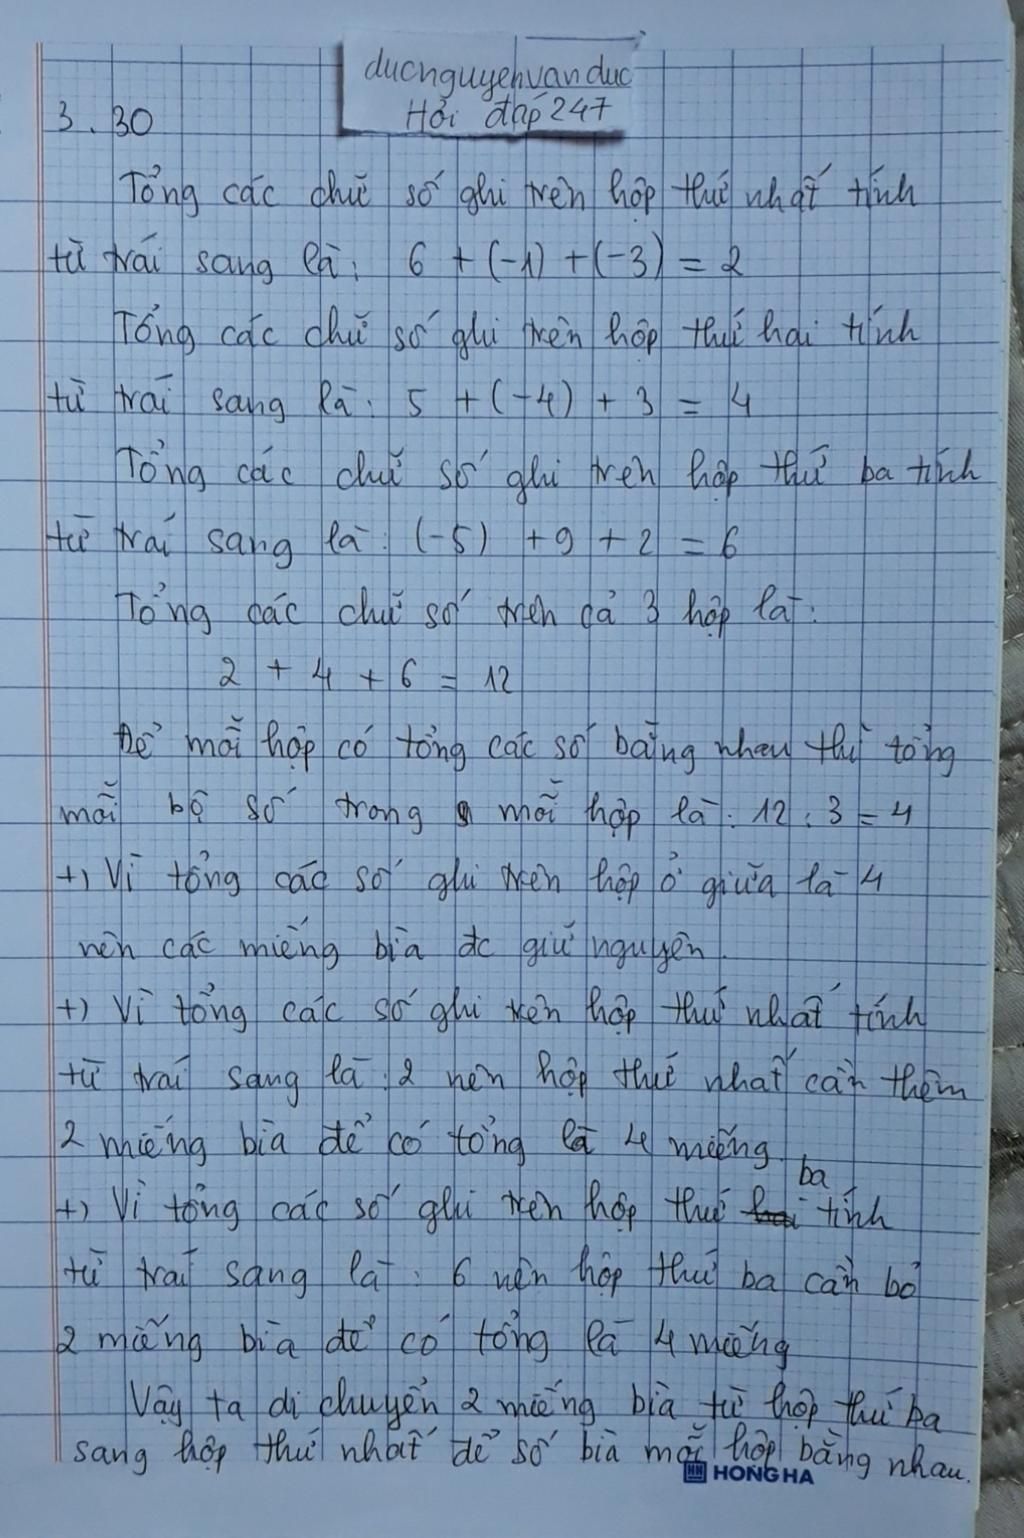 ducnguyenvanduc
Hỏi đáp 247
3.30
Tổng các chữ số ghi trên hộp thứ nhất tính
từ trái sang là: 6 + (-1) + (-3) = 2
Tổng các chữ số ghi trên hộp thứ hai tính
từ trái sang là: 5 + (-4) + 3 = 4
Tổng các chữ số ghi trên hộp thứ ba tính
từ trái sang là: (-5) + 9 + 2 = 6
Tổng các chữ số trên cả 3 hộp là:
2 + 4 + 6 = 12
Để mỗi hộp có tổng các số bằng nhau thì tổng
mỗi bộ số trong mỗi hộp là: 12 : 3 = 4
+) Vì tổng các số ghi trên hộp ở giữa là 4
nên các miếng bìa đc giữ nguyên.
+) Vì tổng các số ghi trên hộp thứ nhất tính
từ trái sang là: 2 nên hộp thứ nhất cần thêm
2 miếng bìa để có tổng là 4 miếng.
+) Vì tổng các số ghi trên hộp thứ ba tính
từ trái sang là: 6 nên hộp thứ ba cần bỏ
2 miếng bìa để có tổng là 4 miếng
Vậy ta di chuyển 2 miếng bìa từ hộp thứ ba
sang hộp thứ nhất để số bìa mỗi hộp bằng nhau.
HH HONG HA